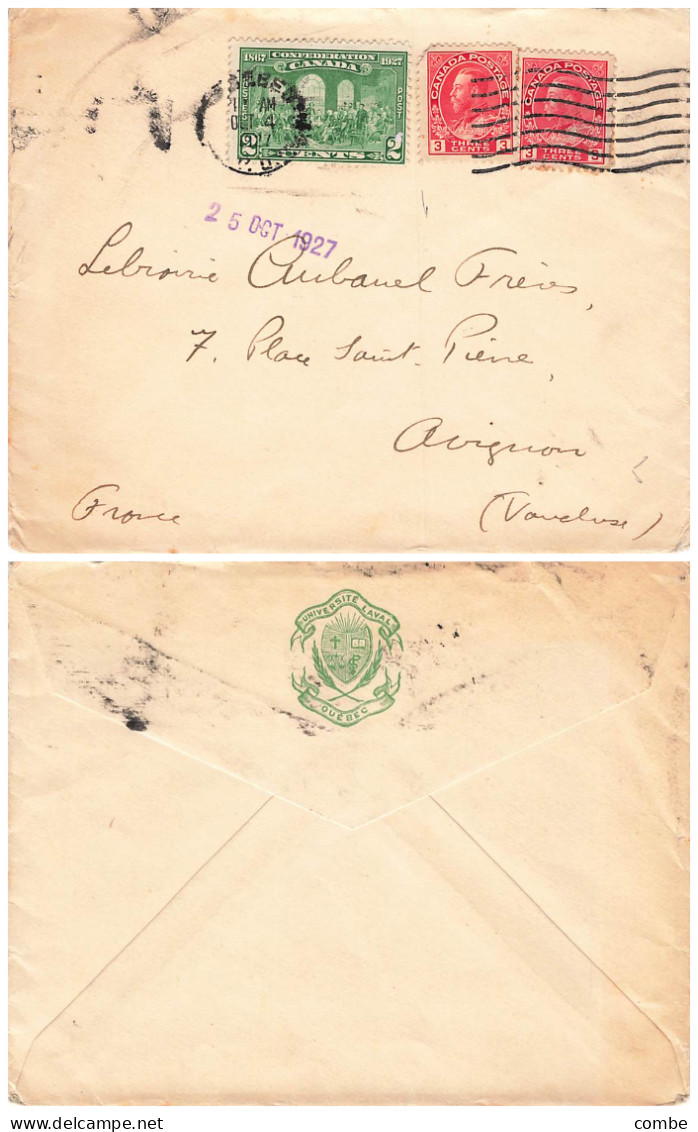 1867 CONFEDERATION 1927
CANADA
POSTES POST
2 CENTS 2
CANADA POSTAGE
3 THREE CENTS 3
CANADA POSTAGE
3 THREE CENTS 3
AM
25 OCT 1927
Librairie Aubanel Frères,
7, Place Saint-Pierre,
Avignon
France (Vaucluse)
UNIVERSITÉ LAVAL
QUÉBEC
combe